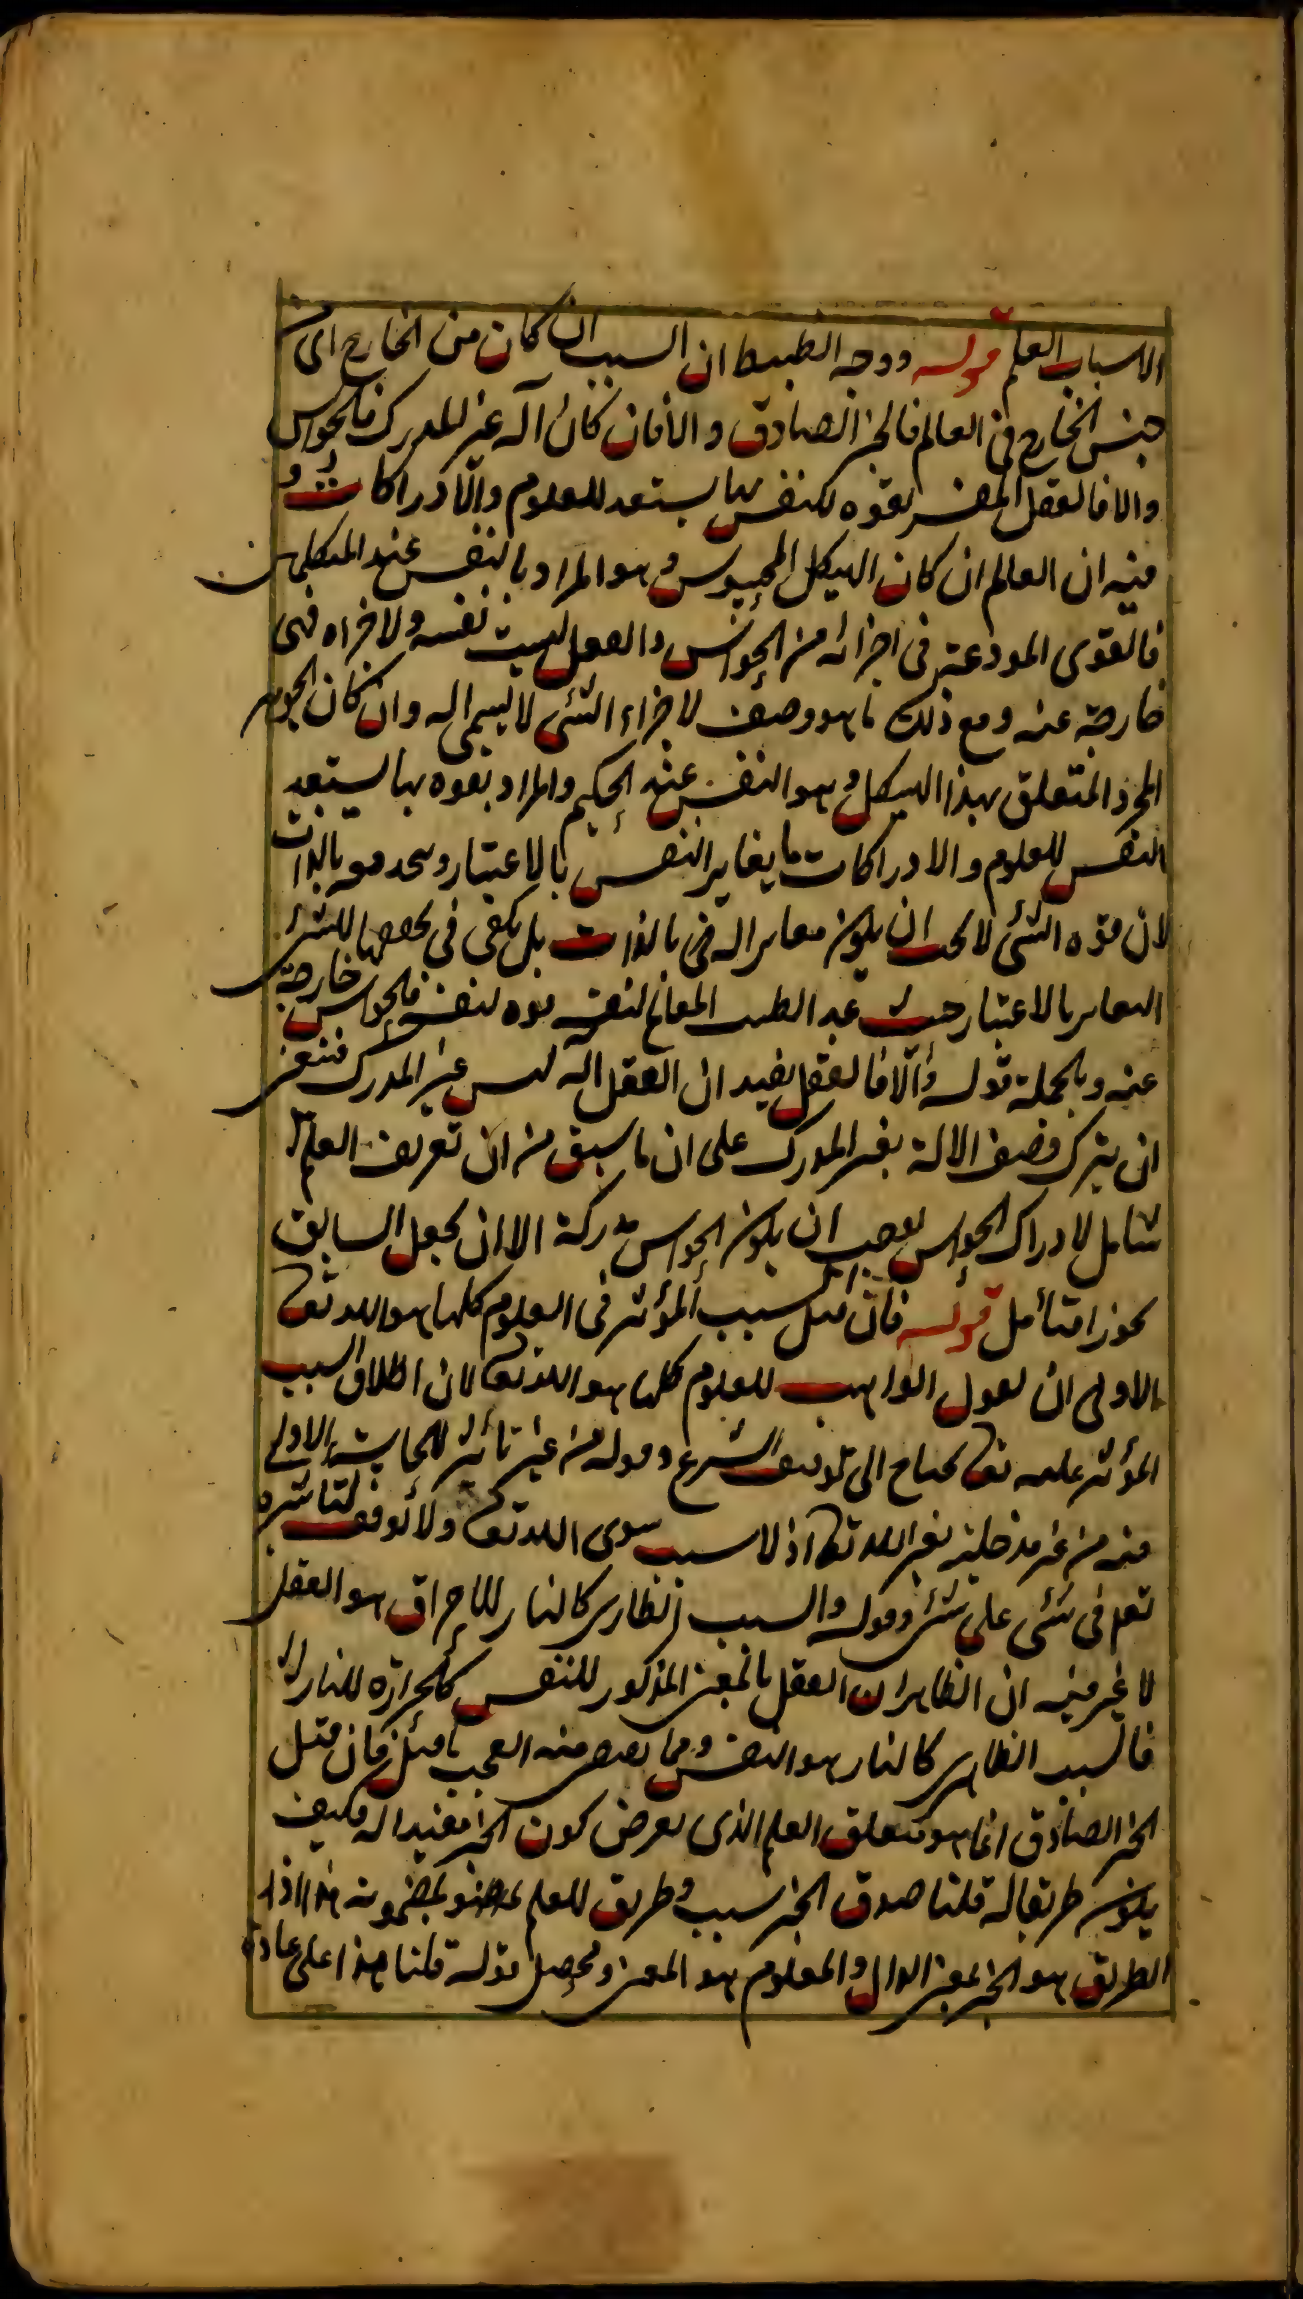 الاسباب العلم قوله ووجه الضبط ان السبب ان كان من الخارج اى
جنس الخارج فى العالم فالخبر الصادق والا فان كان آله غير المدرك فالحواس
والا فالعقل المفسر بقوة للنفس بها يستعد للعلوم والادراكات و
فيه ان العالم ان كان الهيكل المحسوس وهو المراد بالنفس عند المتكلمين
فالقوى المودعة فى اجزائه من الحواس والعقل ليست نفسه ولا اجزاه فهى
خارجة عنه ومع ذلك ما هو وصف لاجزاء الشئ لا يسمى اله وان كان الجوهر
المجرد المتعلق بهذا الهيكل وهو النفس عند الحكيم والمراد بقوه بها يستعد
النفس للعلوم والادراكات ما يغاير النفس بالاعتبار ويتحد معه بالذات
لان قوه الشئ لا يجب ان يكون مغايرا له فى بالذات بل يكفى فى تحققها للشئ
التغاير بالاعتبار حيث عد الطبيب المعالج لنفسه قوه لنفسه فالحواس خارجة
عنه وبالجملة قوله والا فالعقل يفيد ان العقل اله ليس غير المدرك فينبغى
ان يترك وصف الالة بغير المدرك على ان ما سبق من ان تعريف العلم
شامل لادراك الحواس يوجب ان يكون الحواس مدركة الا ان يجعل السابق
تجوزا فتأمل قوله فان قيل السبب المؤثر فى العلوم كلها هو الله تعا
الاولى ان يقول الواهب للعلوم كلها هو الله تعا لان اطلاق السبب
المؤثر عليه تعا يحتاج الى توقيف الشرع وقوله من غير تاثير للحاسة الاولى
فيه من غير مدخلية لغير الله تعا اذ لا سبب سوى الله تعا ولا توقف لتاثيره
تعا فى شئ على شئ وقوله والسبب الظاهرى كالنار للاحراق هو العقل
لا غير فيه ان الظاهر ان العقل بالمعنى المذكور للنفس كالحرارة للنار
فالسبب الظاهرى كالنار هو النفس ومما يقضى منه العجب ما قيل فان قيل
الخبر الصادق انما هو متعلق العلم الذى يعرض كون الخبر مفيدا له فكيف
يكون طريقا له قلنا صدق الخبر سبب وطريق للعلم بمضمونه هذا اذ
الطريق هو الخبر بمعنى الدال والمعلوم هو المعنى ومحصل قوله قلنا هذا على عادة